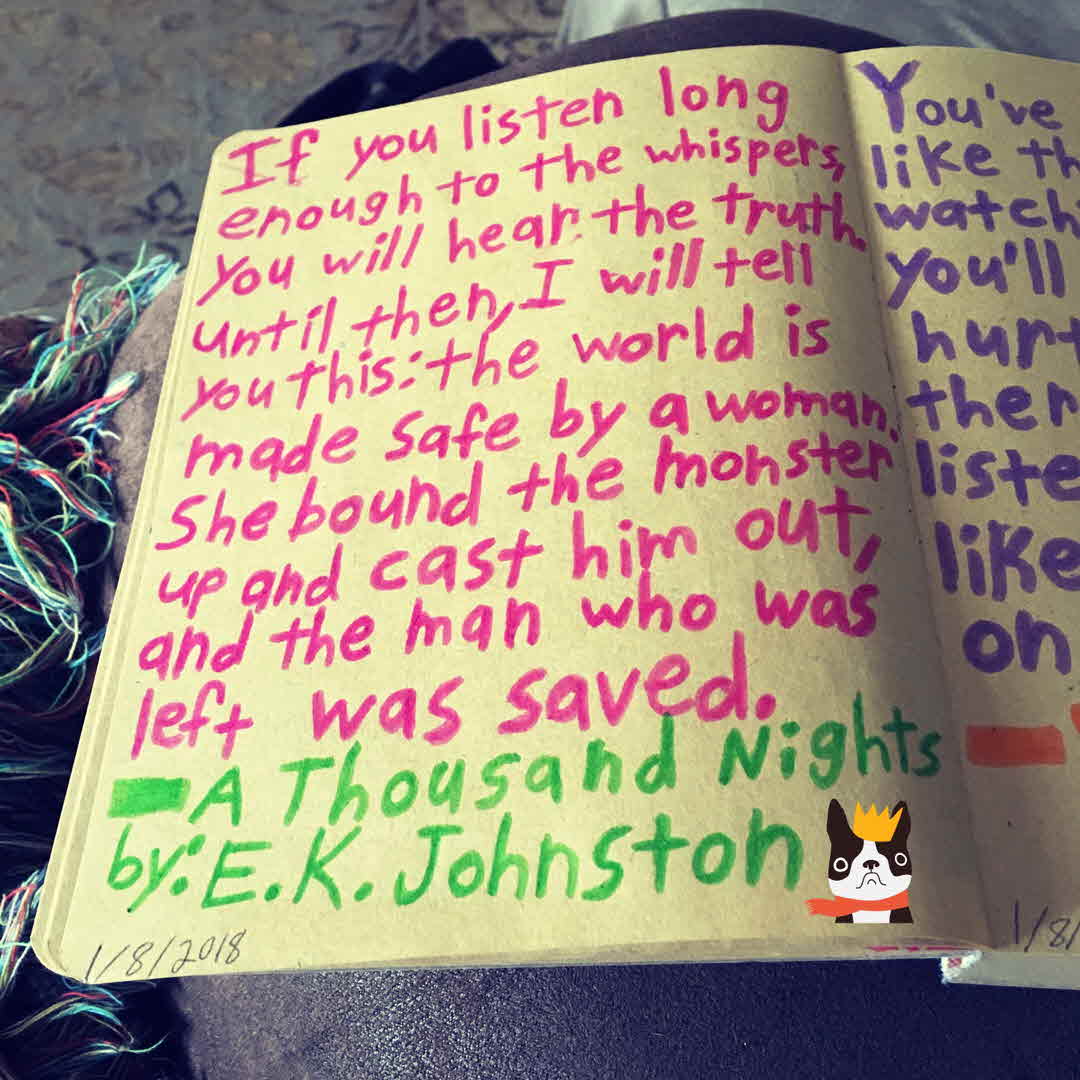 If you listen long
enough to the whispers,
you will hear the truth.
Until then, I will tell
you this: the world is
made safe by a woman.
She bound the monster
up and cast him out,
and the man who was
left was saved.
—A Thousand Nights
by: E.K. Johnston
1/8/2018
You've
like th
watch
you'll
hurt
ther
liste
like
on
1/8/